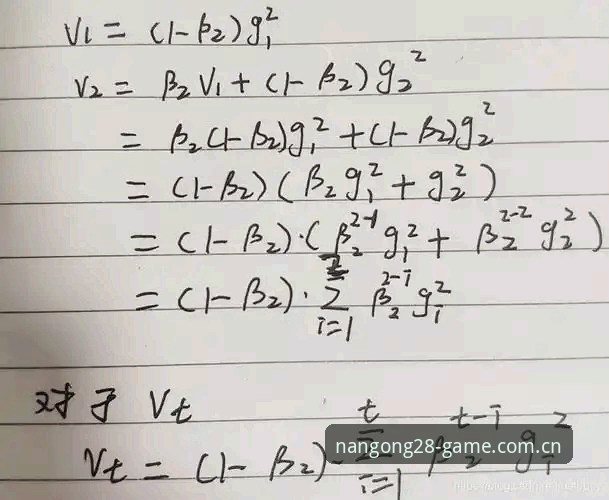 V₁ = (1-β₂)g₁²
V₂ = β₂V₁ + (1-β₂)g₂²
= β₂(1-β₂)g₁² + (1-β₂)g₂²
= (1-β₂)(β₂g₁² + g₂²)
= (1-β₂)·(β₂²⁻¹g₁² + β₂²⁻²g₂²)
= (1-β₂)·∑ᵢ₌₁² β₂²⁻ⁱgᵢ²
对于 Vt
Vt = (1-β₂)·∑ᵢ₌₁ᵗ β₂ᵗ⁻ⁱgᵢ²
nangong28-game.com.cn